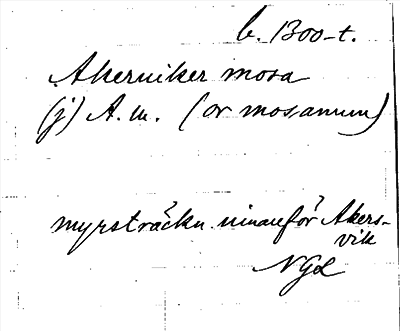 b. 1300-t.
Akerniker mosa
(j) A. m. (or mosanum)
myrsträckn. innanför Akers-
vik
NGL